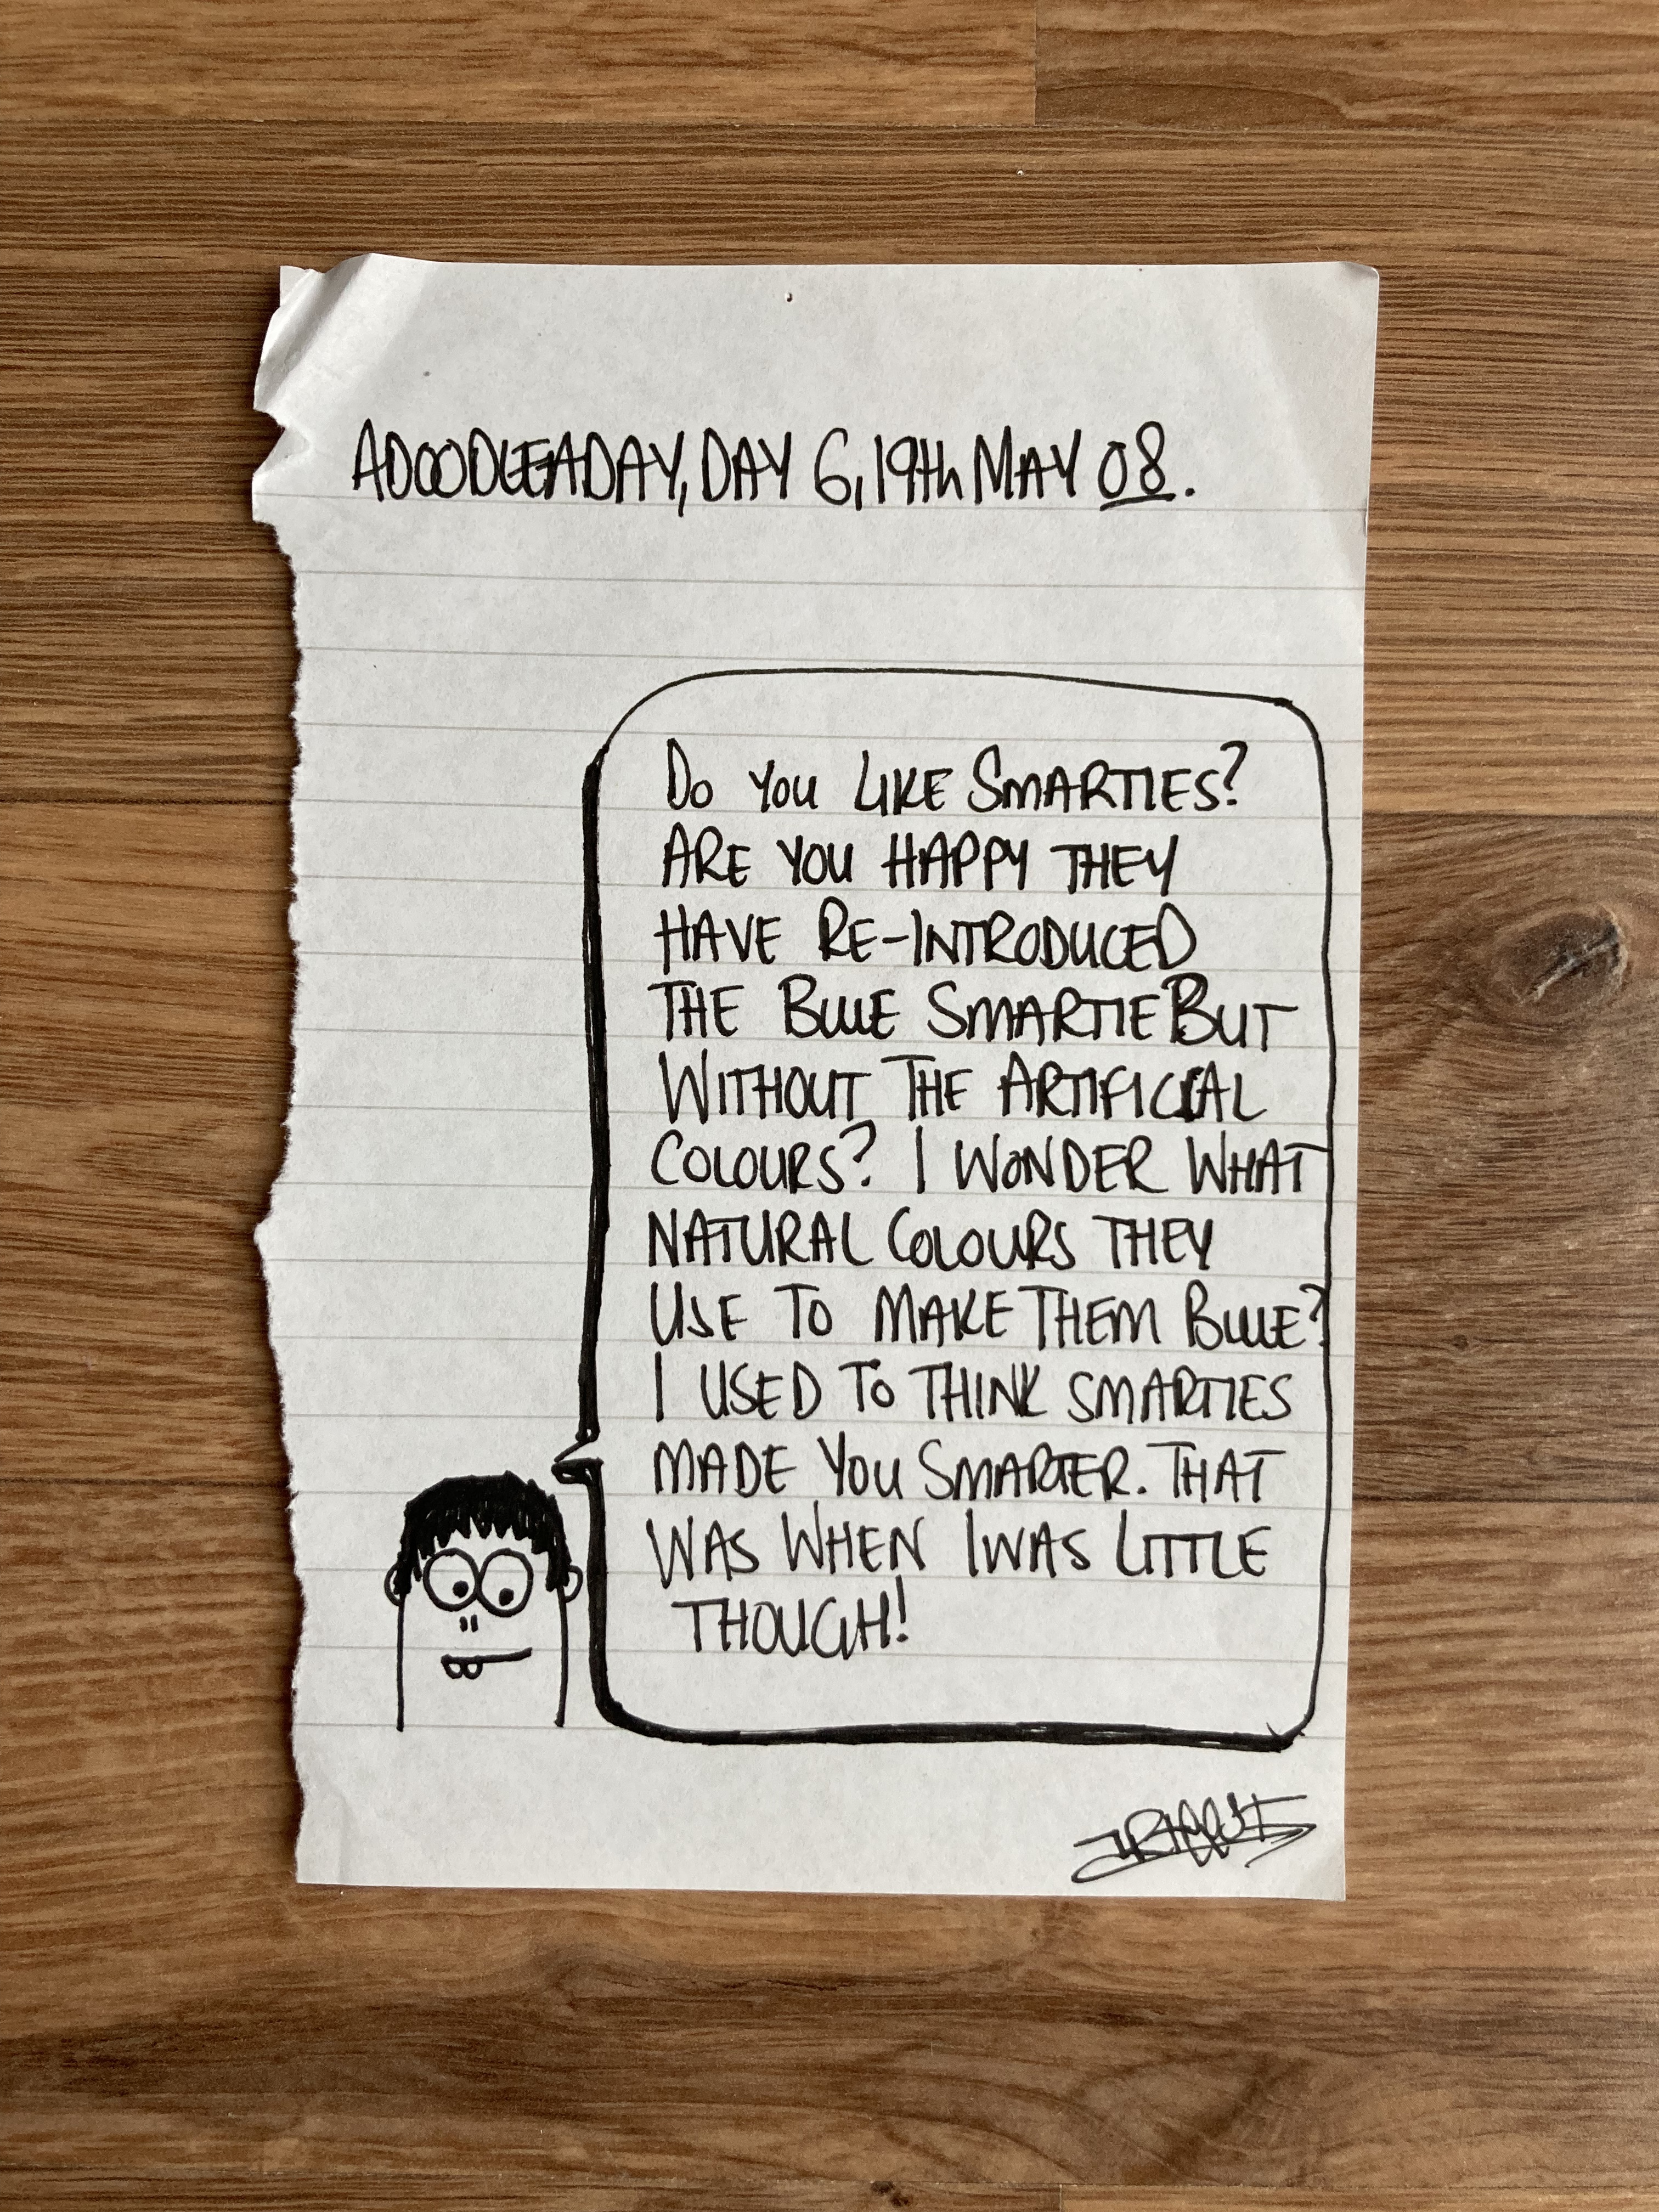 ADOODLEADAY, DAY 6, 19th MAY 08.
DO YOU LIKE SMARTIES?
ARE YOU HAPPY THEY
HAVE RE-INTRODUCED
THE BLUE SMARTIE BUT
WITHOUT THE ARTIFICIAL
COLOURS? I WONDER WHAT
NATURAL COLOURS THEY
USE TO MAKE THEM BLUE?
I USED TO THINK SMARTIES
MADE YOU SMARTER. THAT
WAS WHEN I WAS LITTLE
THOUGH!